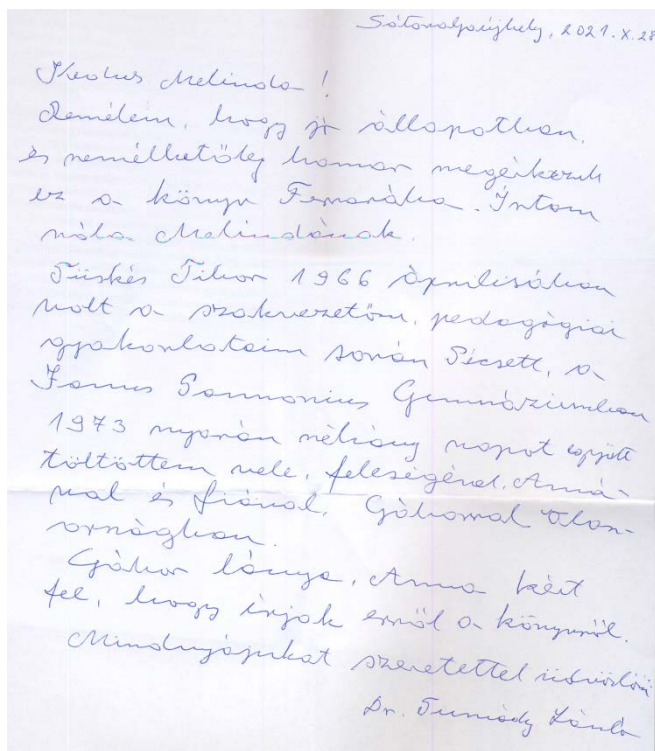 Sátoraljaújhely, 2021. X. 28
Kedves Melinda!
Remélem, hogy jó állapotban,
és remélhetőleg hamar megérkezik
ez a könyv Ferrarába. Írtam
róla Melindának.
Tüskés Tibor 1966 áprilisában
volt a szakvezetőm, pedagógiai
gyakorlataim során Pécsett, a
Janus Pannonius Gimnáziumban
1973 nyarán néhány napot együtt
töltöttem vele, feleségével, Anná-
val és fiával, Gáborral Olasz-
országban.
Gábor lánya, Anna kért
fel, hogy írjak erről a könyvről.
Mindnyájukat szeretettel üdvözlöm
Dr. László